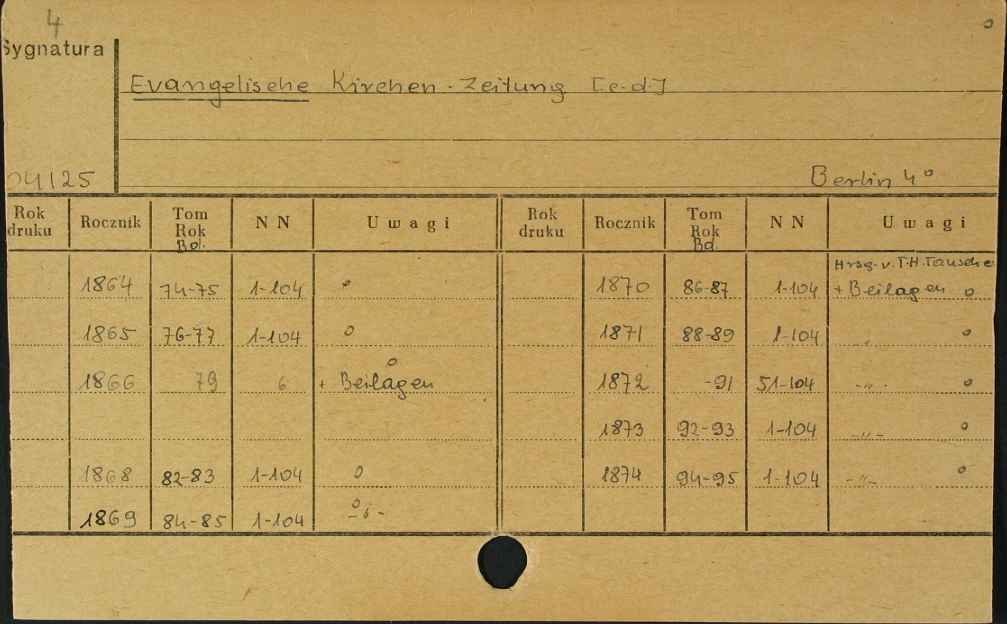 4
Sygnatura
Evangelische Kirchen-Zeitung [c.d.]
04125
Berlin 4°
Rok druku Rocznik Tom Rok Bd. NN Uwagi Rok druku Rocznik Tom Rok Bd. NN Uwagi
Hrsg. v. T.H. Tausche
1864 74-75 1-104 o 1870 86-87 1-104 + Beilagen o
1865 76-77 1-104 o 1871 88-89 1-104 " o
o
1866 79 6 + Beilagen 1872 -91 51-104 -"- o
1873 92-93 1-104 -"- o
1868 82-83 1-104 o 1874 94-95 1-104 -"- o
1869 84-85 1-104 o